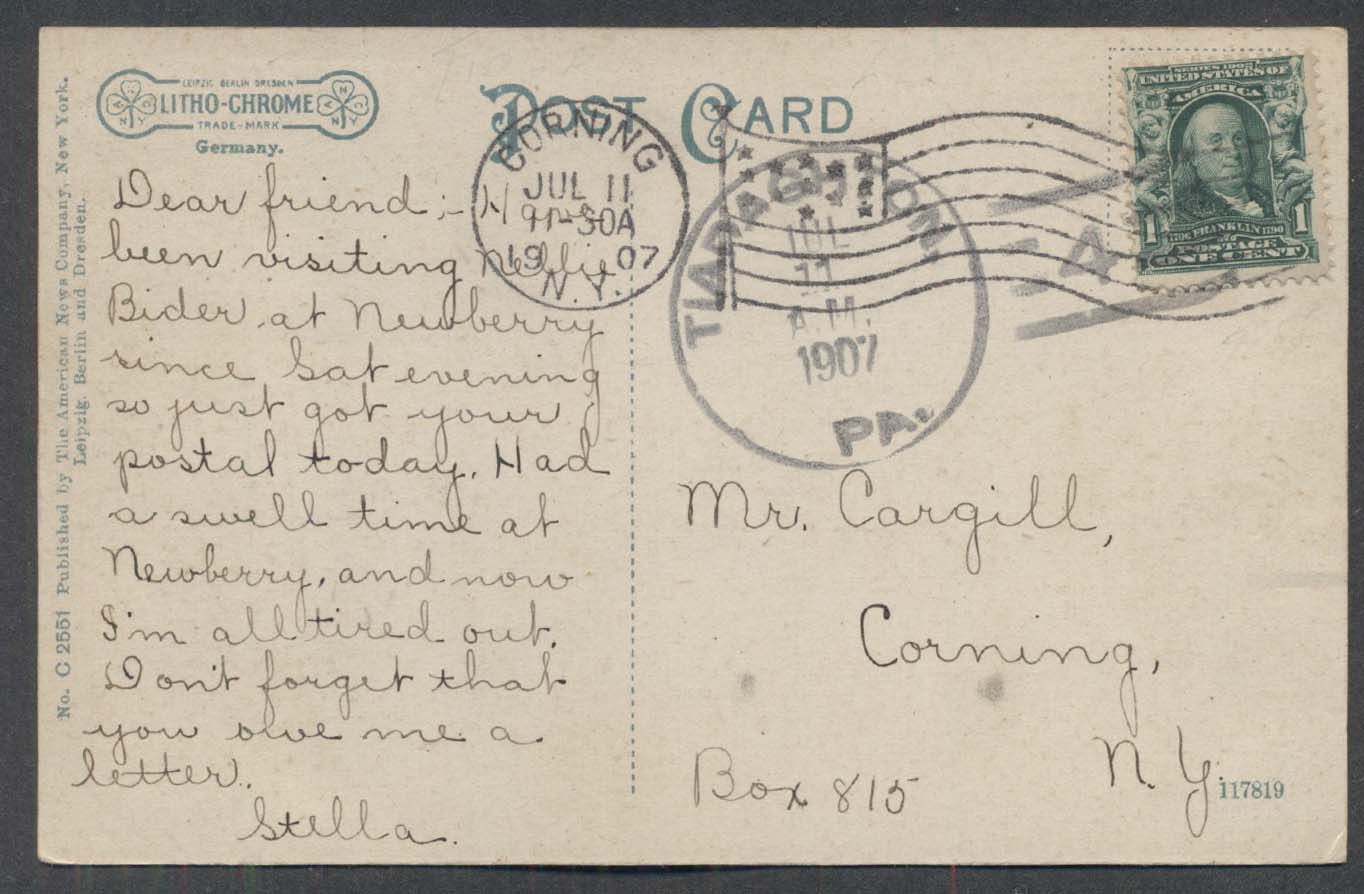 LEIPZIG BERLIN DRESDEN
LITHO-CHROME
TRADE-MARK
Germany.
POST CARD
No. C 2551 Published by The American News Company, New York.
Leipzig, Berlin and Dresden.
CORNING
JUL 11
30A
1907
N.Y.
JUL
11
A.M.
1907
PA.
4
SERIES 1902
UNITED STATES OF
AMERICA
FRANKLIN 1790
POSTAGE
1 1
ONE CENT
Dear friend;-
been visiting Nellie
Bider, at Newberry
since Sat evening
so just got your
postal today. Had
a swell time at
Newberry, and now
I'm all tired out.
Don't forget that
you owe me a
letter.
Stella.
Mr. Cargill,
Corning,
N.Y.
Box 815
117819